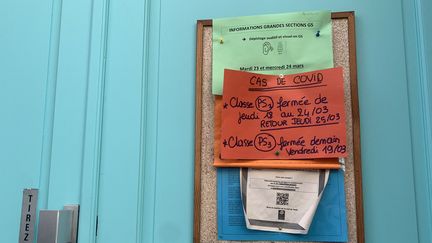 INFORMATIONS GRANDES SECTIONS GS
Mardi 23 et mercredi 24 mars
CAS DE COVID
* Classe PS1 fermée de
jeudi 18 au 24/03
RETOUR JEUDI 25/03
* Classe PS3 fermée demain
Vendredi 19/03
TIREZ